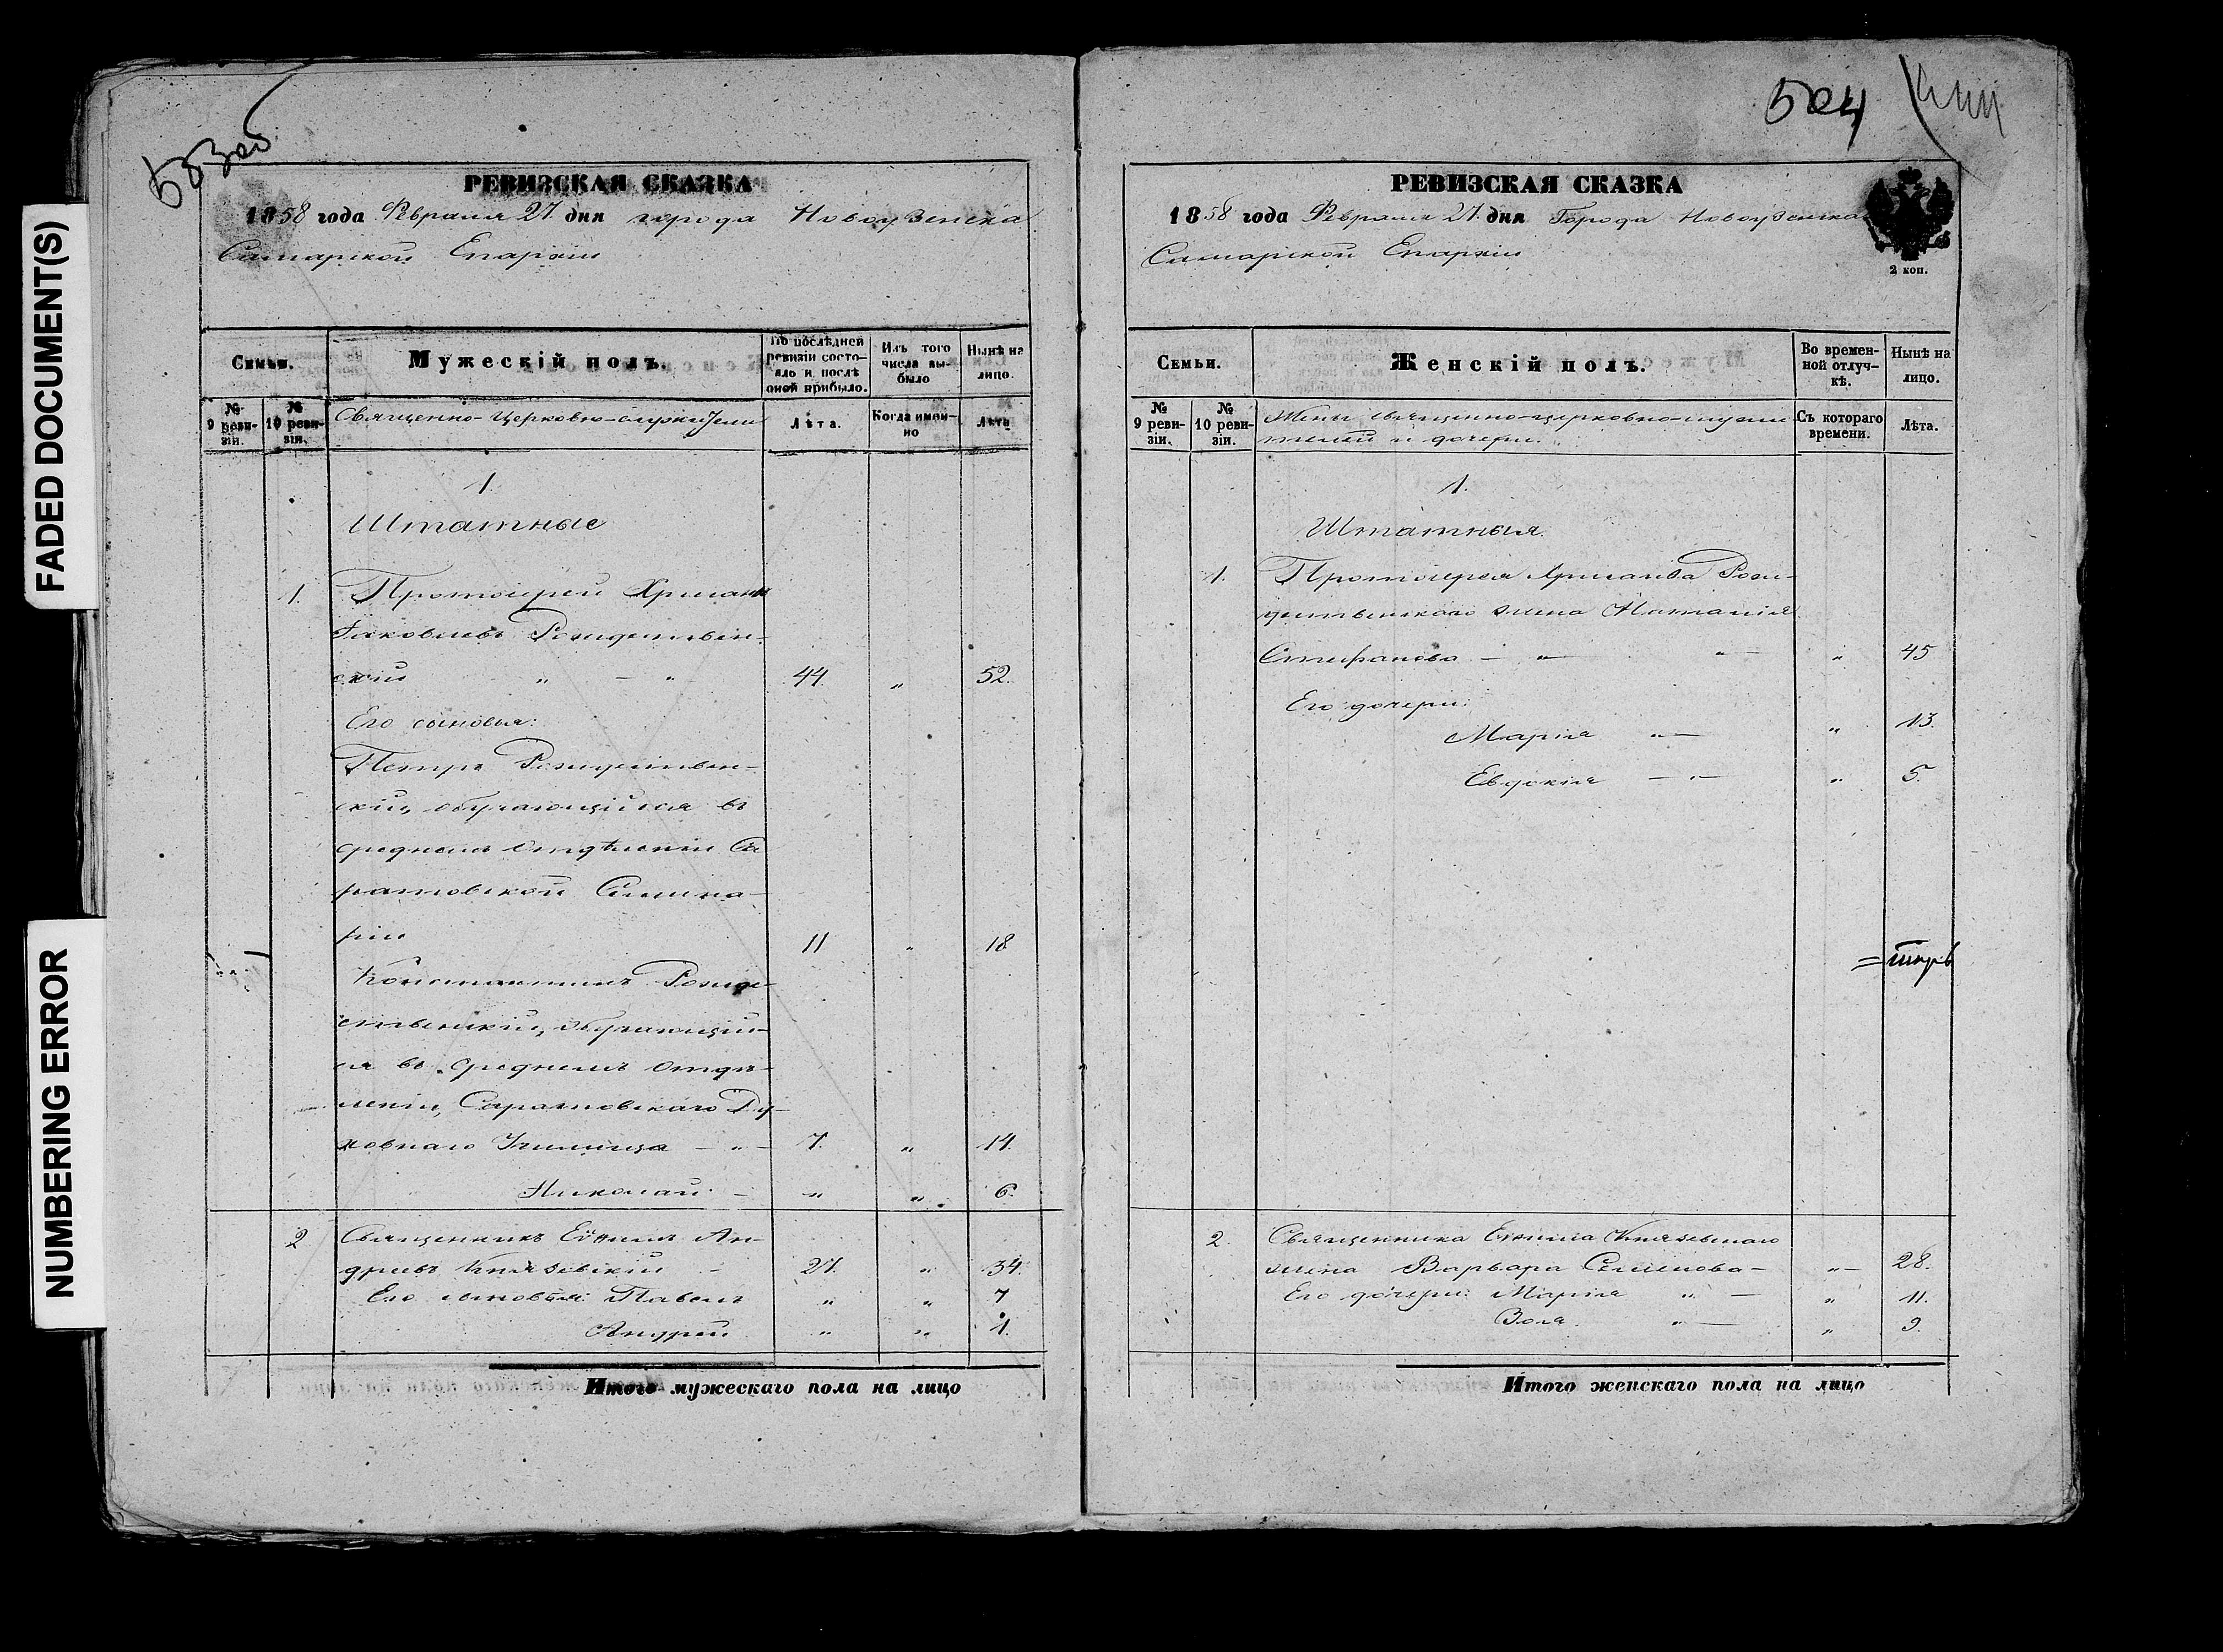 FADED DOCUMENT(S)
NUMBERING ERROR
РЕВИЗСКАЯ СКАЗКА
1858 года Февраля 27 дня города Новоузенска
Самарской Епархіи
Семьи.
Мужескій полъ.
По послѣдней ревизіи состояло и послѣ оной прибыло.
Изъ того числа выбыло
Нынѣ на лицо.
№ 9 ревизіи.
№ 10 ревизіи.
Священно-Церковно-служители
Лѣта.
Когда именно
Лѣта
1.
Штатные
1. Протоіерей Хрисанѳъ
Іаковлевъ Рождествен-
скій " — " 44. " 52.
Его сыновья:
Петръ Рождествен-
скій, обучающійся въ
среднемъ Отдѣленіи Са
ратовской Семина-
ріи 11 " 18
Константинъ Рожде-
ственскій, обучающій-
ся въ среднемъ Отдѣ-
леніи, Саратовскаго Ду-
ховнаго Училища — " — 7. " 14.
Николай — " " 6.
2 Священникъ Еѳимъ Ан-
дреевъ Князевскій — 27. " 34.
Его сыновья: Павелъ " " 7
Андрей " " 4.
Итого мужескаго пола на лицо
504
РЕВИЗСКАЯ СКАЗКА
1858 года Февраля 27 дня Города Новоузенска
Самарской Епархіи
2 коп.
Семьи.
Женскій полъ.
Во временной отлучкѣ.
Нынѣ на лицо.
№ 9 ревизіи.
№ 10 ревизіи.
Жены священно-церковно-служи
телей и дочери.
Съ котораго времени.
Лѣта.
1.
Штатныя.
1. Протоіерея Хрисанѳа Рож-
дественскаго жена Наталія
Стефанова — " — " — " 45
Его дочери:
Марія " — " 13.
Евдокія — " — " 5.
2. Священника Еѳима Князевскаго
жена Варвара Семенова — " — 28.
Его дочери: Марія " — " 11.
Зоя. " — " 9.
Итого женскаго пола на лицо